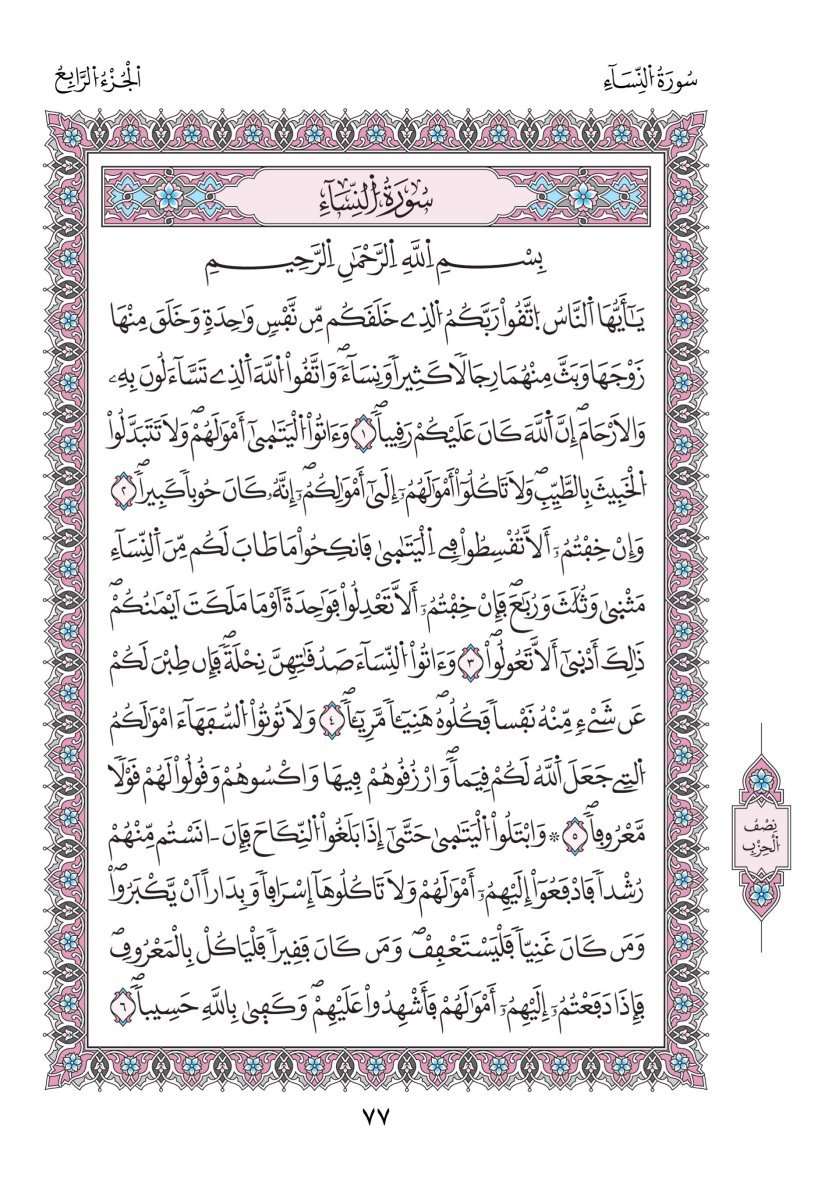 سُورَةُ النِّسَآءِ
الْجُزْءُ الرَّابِعُ
سُورَةُ النِّسَآءِ
بِسْمِ اِللَّهِ اِلرَّحْمَٰنِ اِلرَّحِيمِ
يَٰٓأَيُّهَا اَلنَّاسُ اُ۪تَّقُواْ رَبَّكُمُ اُلذِے خَلَقَكُم مِّن نَّفْسٖ وَٰحِدَةٖ وَخَلَقَ مِنْهَا
زَوْجَهَا وَبَثَّ مِنْهُمَا رِجَالاٗ كَثِيراٗ وَنِسَآءٗۖ وَاتَّقُواْ اُللَّهَ اَلذِے تَسَّآءَلُونَ بِهِۦ
وَالَارْحَامَۖ إِنَّ اَللَّهَ كَانَ عَلَيْكُمْ رَقِيباٗۖ ١ وَءَاتُواْ اُلْيَتَٰم۪ىٰٓ أَمْوَٰلَهُمْۖ وَلَا تَتَبَدَّلُواْ
اُلْخَبِيثَ بِالطَّيِّبِۖ وَلَا تَاكُلُوٓاْ أَمْوَٰلَهُمُۥٓ إِلَىٰٓ أَمْوَٰلِكُمُۥٓۖ إِنَّهُۥ كَانَ حُوباٗ كَبِيراٗۖ ٢
وَإِنْ خِفْتُمُۥٓ أَلَّا تُقْسِطُواْ فِے اِلْيَتَٰم۪ىٰ فَانكِحُواْ مَا طَابَ لَكُم مِّنَ اَلنِّسَآءِ
مَثْن۪ىٰ وَثُلَٰثَ وَرُبَٰعَۖ فَإِنْ خِفْتُمُۥٓ أَلَّا تَعْدِلُواْ فَوَٰحِدَةً اَوْ مَا مَلَكَتَ اَيْمَٰنُكُمْۖ
ذَٰلِكَ أَدْن۪ىٰٓ أَلَّا تَعُولُواْۖ ٣ وَءَاتُواْ اُلنِّسَآءَ صَدُقَٰتِهِنَّ نِحْلَةٗۖ فَإِن طِبْنَ لَكُمْ
عَن شَےْءٖ مِّنْهُ نَفْساٗ فَكُلُوهُ هَنِيٓـٔاٗ مَّرِيٓـٔاٗۖ ٤ وَلَا تُوتُواْ اُلسُّفَهَآءَ امْوَٰلَكُمُ
اُلتِے جَعَلَ اَللَّهُ لَكُمْ قِيَماٗۖ وَارْزُقُوهُمْ فِيهَا وَاكْسُوهُمْ وَقُولُواْ لَهُمْ قَوْلاٗ
مَّعْرُوفاٗۖ ٥ ۞ وَابْتَلُواْ اُلْيَتَٰم۪ىٰ حَتَّىٰٓ إِذَا بَلَغُواْ اُلنِّكَاحَ فَإِنَ اٰنَسْتُم مِّنْهُمْ
رُشْداٗ فَادْفَعُوٓاْ إِلَيْهِمُۥٓ أَمْوَٰلَهُمْ وَلَا تَاكُلُوهَآ إِسْرَافاٗ وَبِدَاراً اَنْ يَّكْبَرُواْۖ
وَمَن كَانَ غَنِيّاٗ فَلْيَسْتَعْفِفْۖ وَمَن كَانَ فَقِيراٗ فَلْيَاكُلْ بِالْمَعْرُوفِۖ
فَإِذَا دَفَعْتُمُۥٓ إِلَيْهِمُۥٓ أَمْوَٰلَهُمْ فَأَشْهِدُواْ عَلَيْهِمْۖ وَكَف۪ىٰ بِاللَّهِ حَسِيباٗۖ ٦
نِصْفُ
الْحِزْبِ
٧٧